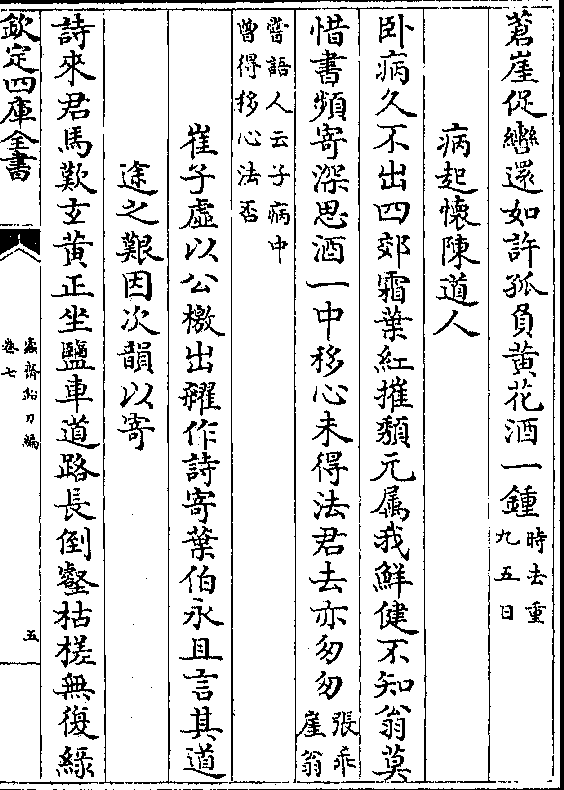 蒼崖促轡還如許孤負黄花酒一鍾時去重
九五日
病起懷陳道人
卧病久不出四郊霜葉紅摧頽元属我鮮健不知翁莫
惜書頻寄深思酒一中移心未得法君去亦匆匆張乖
崖翁
嘗語人云子病中
曽得移心法否
崔子虚以公檄出糴作詩寄葉伯永且言其道
途之艱因次韻以寄
詩來君馬歎玄黄正坐鹽車道路長倒壑枯槎無復緑
欽定四庫全書
盧齋鉛刀編
卷七
五